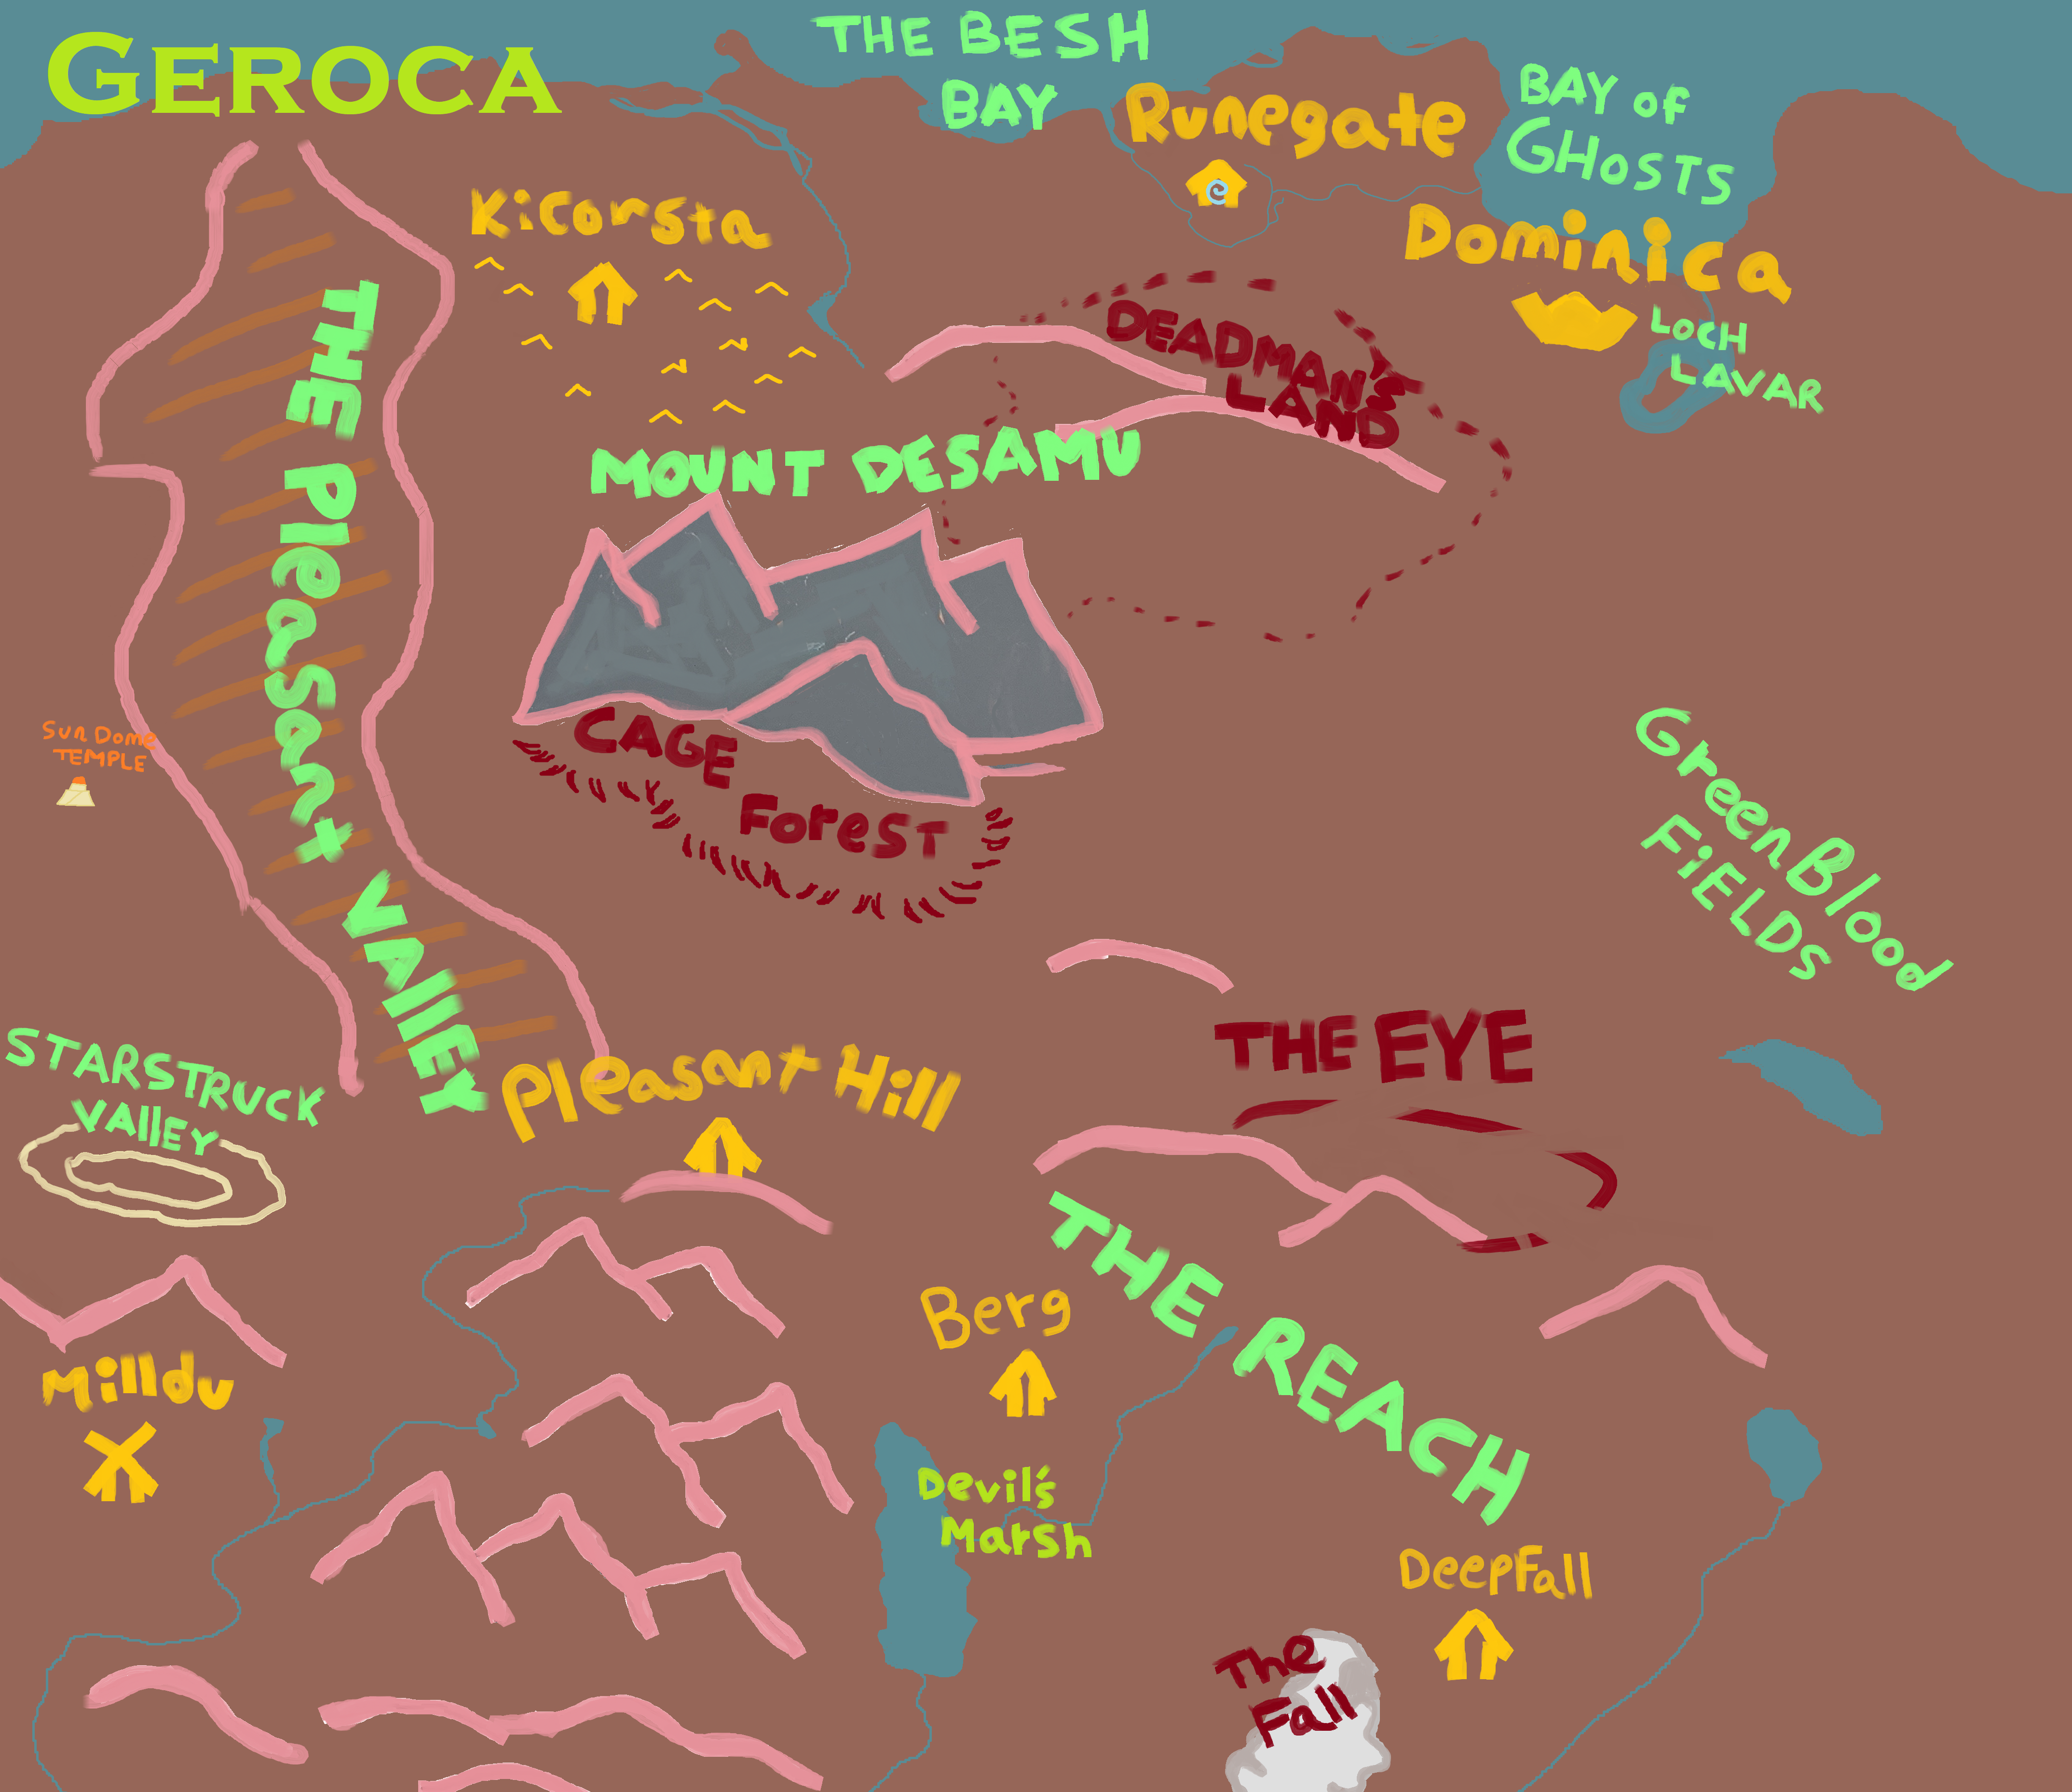 GEROCA
THE BESH
BAY
Runegate
BAY of
GHOSTS
Kicorsta
Dominica
DEADMAN'S
LAND
LOCH
LAVAR
THE PleasanT VAllEY
MOUNT DESAMU
SUN DOME
TEMPLE
CAGE
ForeST
GreenBlood
FiELDS
STARSTRUCK
VAllEY
Pleasant Hill
THE EYE
THE REACH
Berg
Milldu
Devil's
Marsh
DeepFall
The
Fall